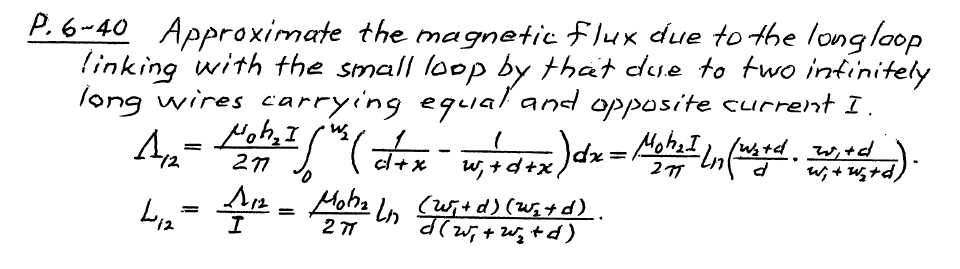 P. 6-40 Approximate the magnetic flux due to the long loop
linking with the small loop by that due to two infinitely
long wires carrying equal and opposite current I.
Λ₁₂ = μ₀h₂I/2π ∫₀^w₂ (1/(d+x) - 1/(w₁+d+x)) dx = μ₀h₂I/2π ln((w₂+d)/d · (w₁+d)/(w₁+w₂+d)).
L₁₂ = Λ₁₂/I = μ₀h₂/2π ln (w₁+d)(w₂+d)/d(w₁+w₂+d).